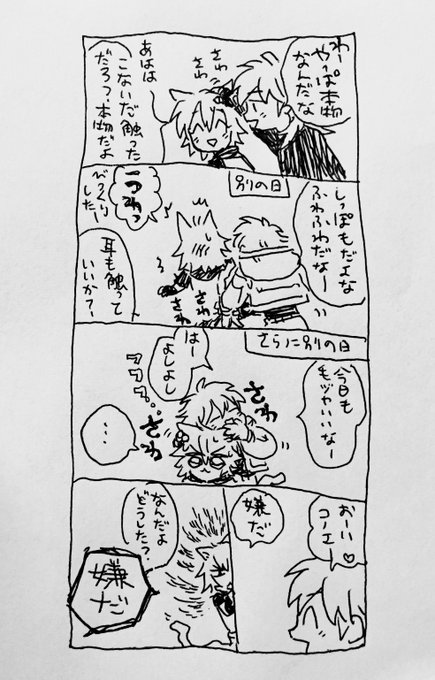 わー
やっぱ本物
なんだな
さわ
さわ
あはは
こないだ触った
だろっ、本物だよ
別の日
しっぽもだよな
ふわふわだなー
うわっ
びっくり
した
さわ
さわ
耳も触って
いいか?
さらに別の日
今日も
毛ヅヤいいなー
はー
よしよし
さわ
さわ
…
おーい
コノエ♡
嫌だ
なんだよ
どうした?
嫌だ